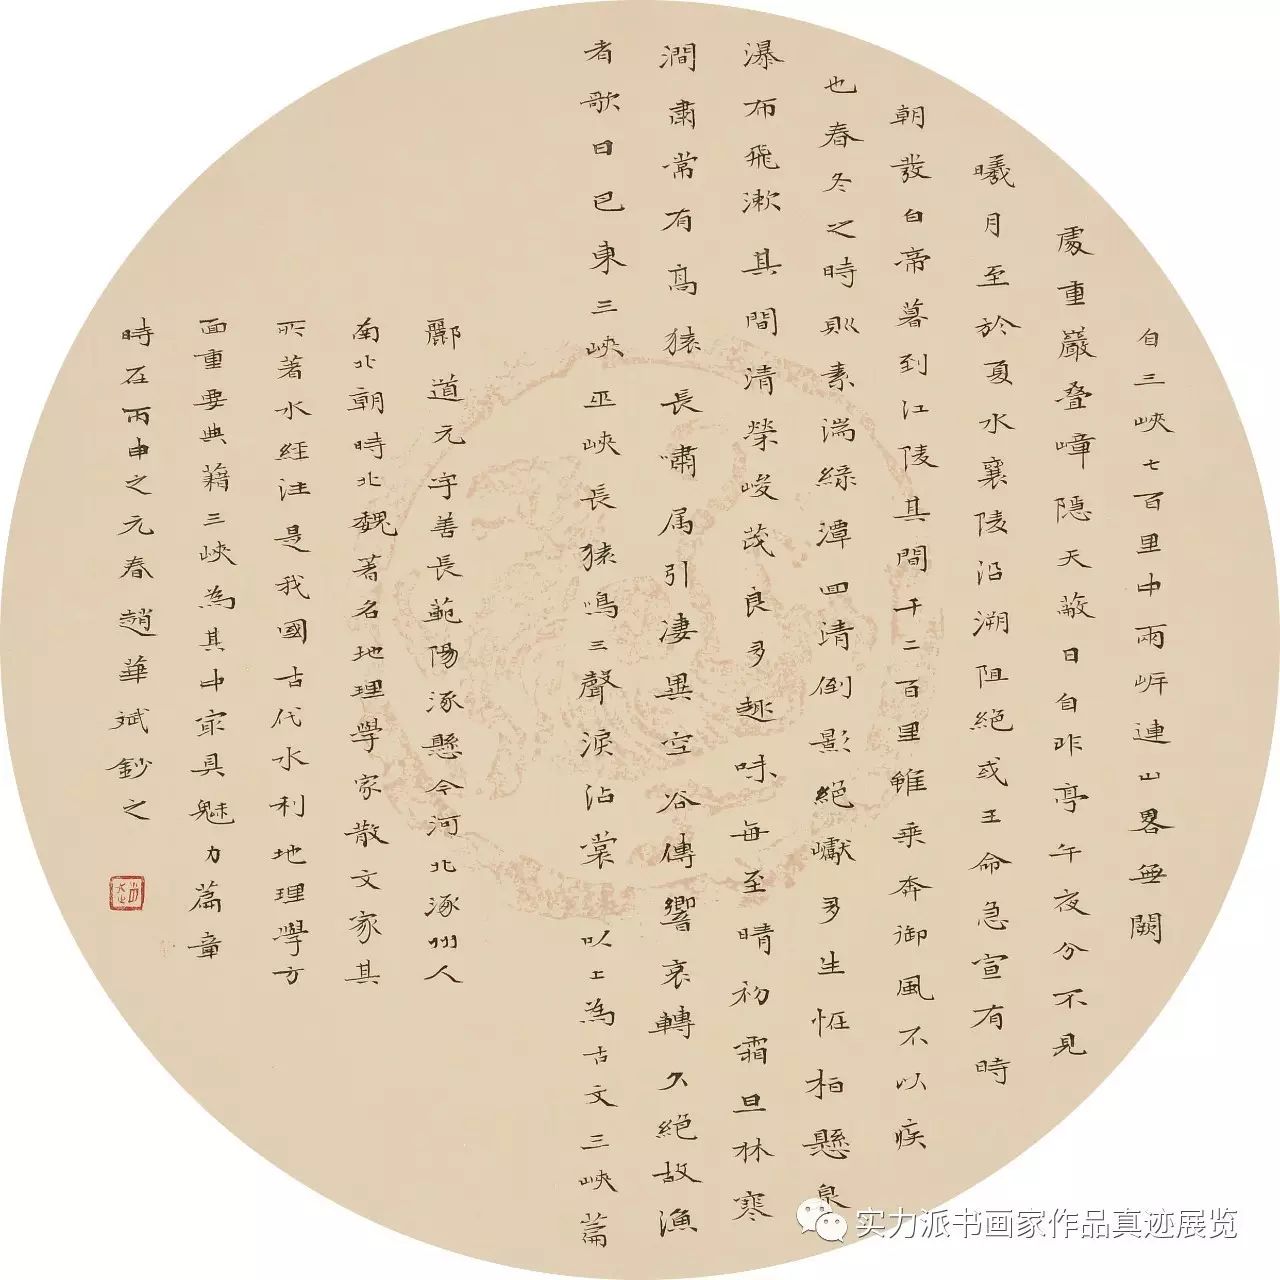 自三峽七百里中兩岍連山畧無闕
處重巖疊嶂隱天蔽日自非亭午夜分不見
曦月至於夏水襄陵沿溯阻絕或王命急宣有時
朝發白帝暮到江陵其間千二百里雖乘奔御風不以疾
也春冬之時則素湍綠潭四清倒影絕巘多生恠柏懸泉
瀑布飛漱其間清榮峻茂良多趣味每至晴初霜旦林寒
澗肅常有高猿長嘯属引凄異空谷傳響哀轉久絕故漁
者歌曰巴東三峽巫峽長猿鳴三聲淚沾裳以上為古文三峽篇
酈道元字善長範陽涿懸今河北涿州人
南北朝時北魏著名地理學家散文家其
所著水經注是我國古代水利地理學方
面重要典藉三峽為其中最具魅力篇章
時在丙申之元春趙華斌鈔之
实力派书画家作品真迹展览